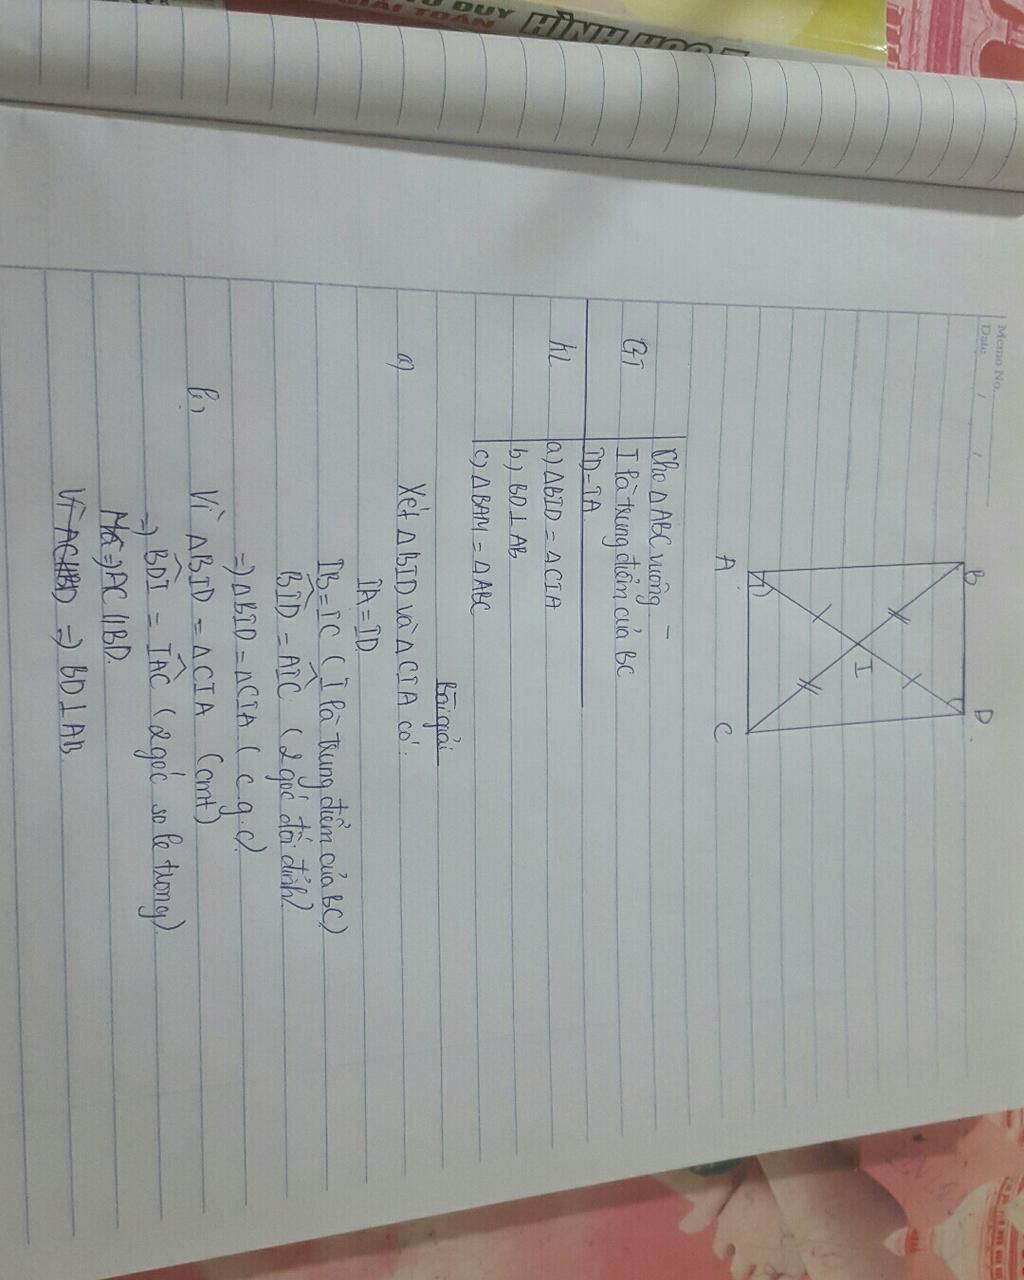 TƯ DUY
GIẢI TOÁN
HÌNH HỌC 7
Memo No.
Date / /
B
D
I
A
C
GT
Cho △ABC vuông
I là trung điểm của BC
ID = IA
KL
a) △BID = △CIA
b) BD ⊥ AB
c) △BAM = △ABC
Bài giải
a) Xét △BID và △CIA có:
IA = ID
IB = IC (I là trung điểm của BC)
BÎD = AÎC (2 góc đối đỉnh)
=> △BID = △CIA (c.g.c)
b, Vì △BID = △CIA (cmt)
=> BD̂I = IÂC (2 góc so le trong)
Mà => AC // BD.
Vì AC // BD => BD ⊥ AB.